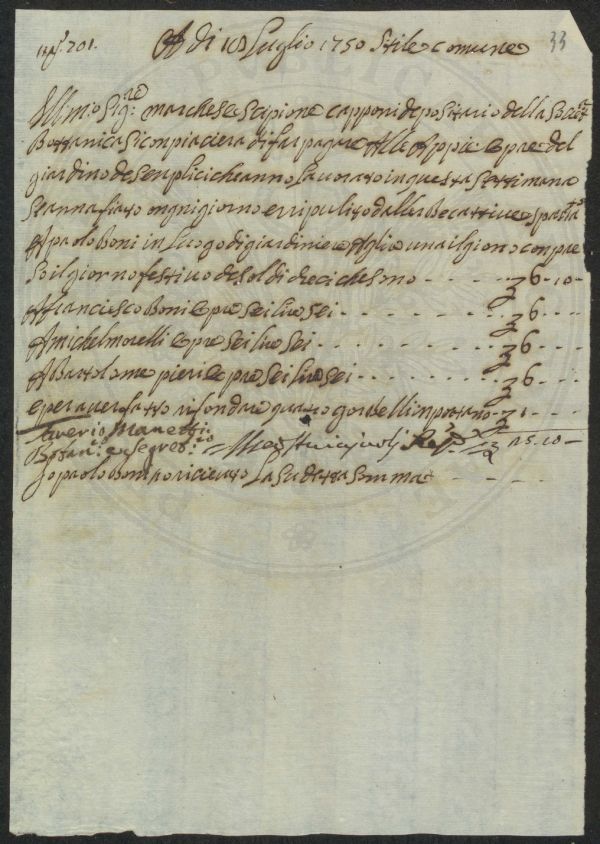 701. A di 18 Luglio 1750 Stile comune 33
Ill:mo Sig:re marchese Scipione capponi depositario della Societ
Bottanica Si conpiacierà di far pagare Alle Appie opre del
giardino de Senplici che anno lavorato in questa Settimana
E anno anafiato ongni giorno e rripulito dalla Becattive
A paolo Boni in Luogo di giardiniere A glio una il giorno conpre
So il giorno festivo de Soldi dieci che Sono - - - - - 6 - 10 -
A Franciesco Boni opre Sei lire Sei - - - - - - 6 - - -
A michel morelli opre Sei lire Sei - - - - - - 6 - - -
A Bartolomeo pieri opre Sei lire Sei - - - - - - 6 - - -
e per aver fatto rifondare quatro gorbelli inportano - 1 - - -
Saverio Manetti
Botan:co e Segret:rio 25 - 10 -
Io paolo Boni o ricieuto La Sudetta Somma - - - -
PUBLIC